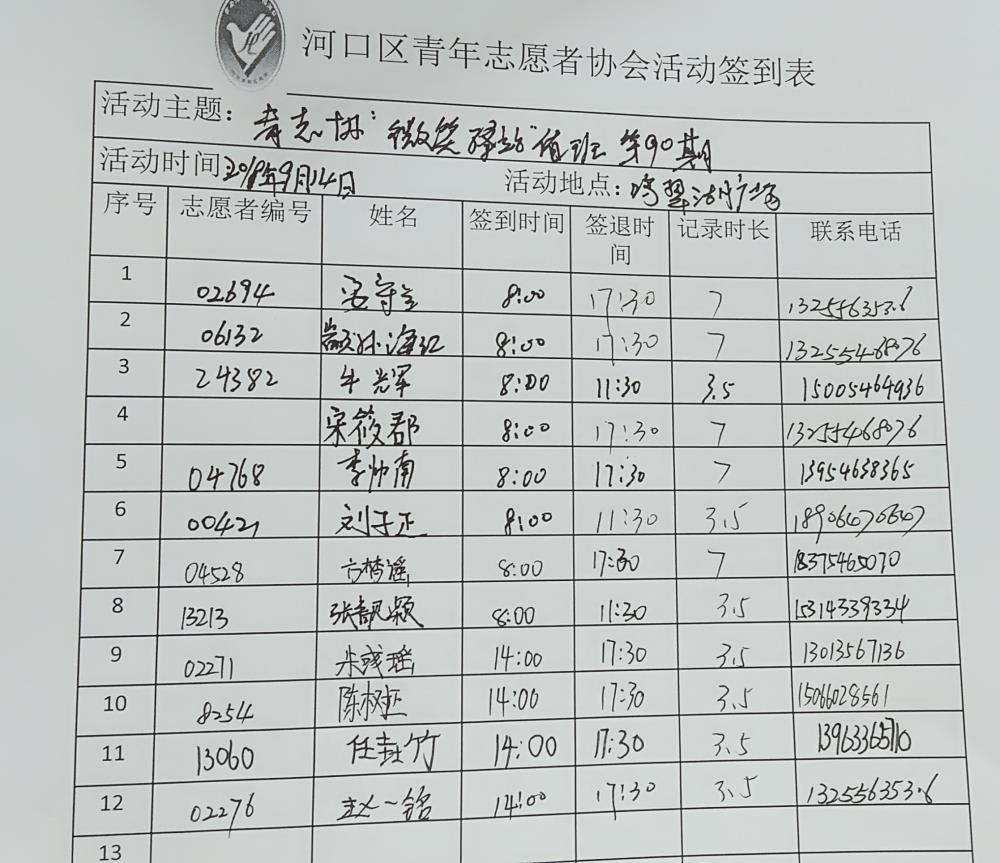 河口区青年志愿者协会活动签到表
活动主题：青志协"微笑驿站"值班 第90期
活动时间 2018年9月14日 活动地点：鸣翠湖广场
序号 志愿者编号 姓名 签到时间 签退时间 记录时长 联系电话
1 02694 8:00 17:30 7 13255635326
2 06132 颛孙海红 8:00 17:30 7 13255468076
3 24382 牛光军 8:00 11:30 3.5 15005464936
4 宋筱郡 8:00 17:30 7 13255468076
5 04768 李帅南 8:00 17:30 7 13954638365
6 00421 刘子正 8:00 11:30 3.5 18906470647
7 04528 方梦谣 8:00 17:30 7 18375465070
8 13213 张靓颖 8:00 11:30 3.5 15314339334
9 02271 朱彧瑶 14:00 17:30 3.5 13013567136
10 8254 陈树正 14:00 17:30 3.5 15066028561
11 13060 任封竹 14:00 17:30 3.5
12 02276 赵一铭 14:00 17:30 3.5
13